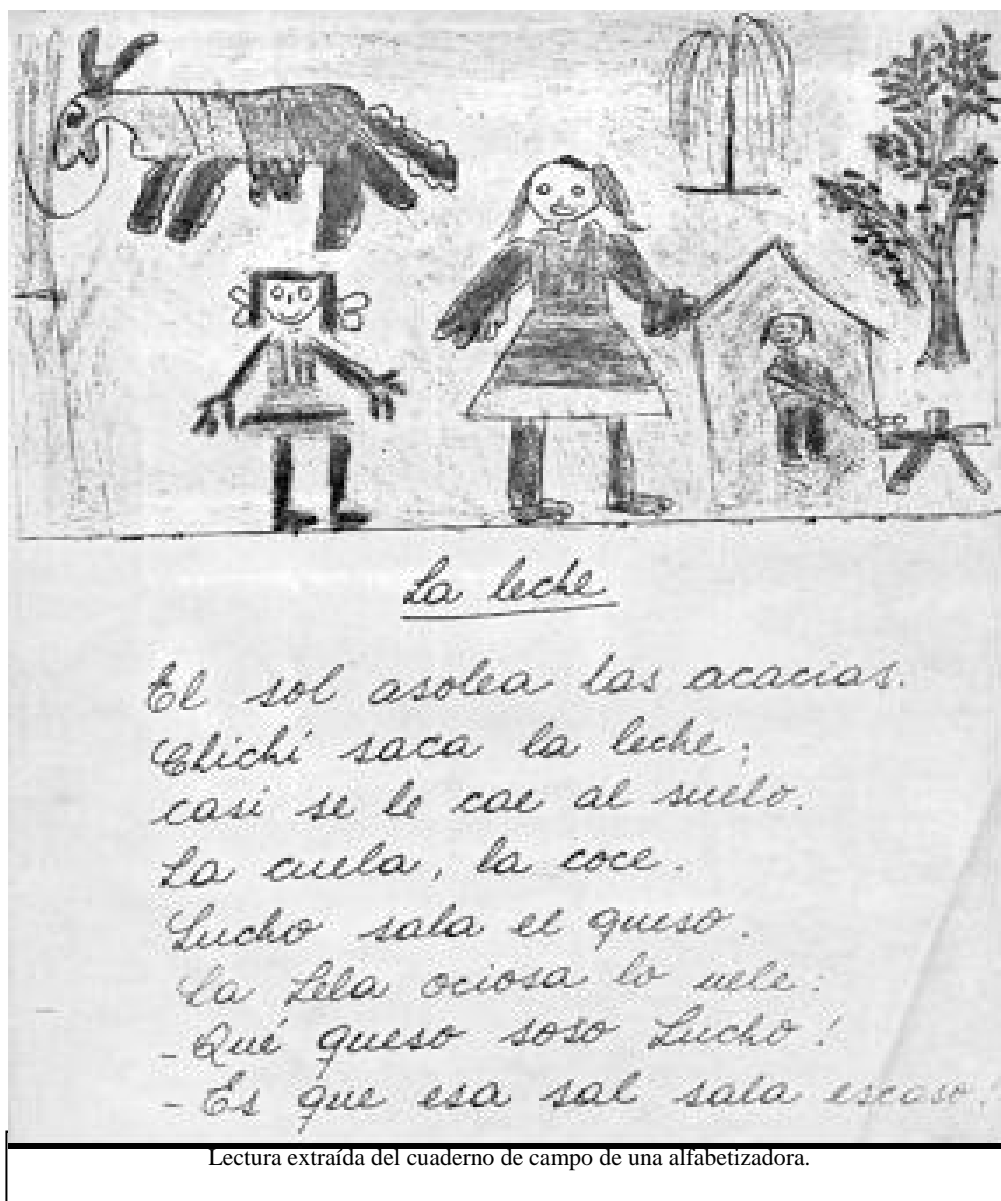 La leche
El sol asolea las acacias.
Chichí saca la leche;
casi se le cae al suelo.
La cuela, la coce.
Lucho sala el queso.
La Lela ociosa lo uele:
- Qué queso soso Lucho!
- Es que esa sal sala escaso.
Lectura extraída del cuaderno de campo de una alfabetizadora.